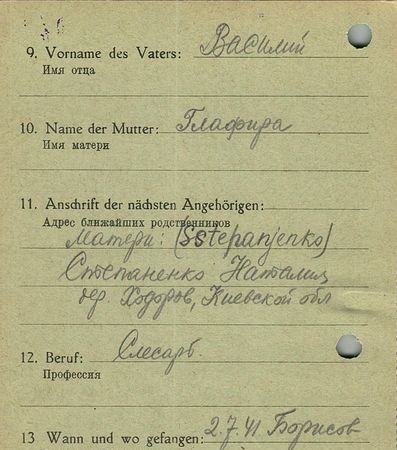 9. Vorname des Vaters: Василий
Имя отца
10. Name der Mutter: Глафира
Имя матери
11. Anschrift der nächsten Angehörigen:
Адрес ближайших родственников
Матери: (Sstepanjenko)
Степаненко Наталия
дер. Ходоров, Киевской обл
12. Beruf: Слесарь.
Профессия
13 Wann und wo gefangen: 2.7.41 Борисов